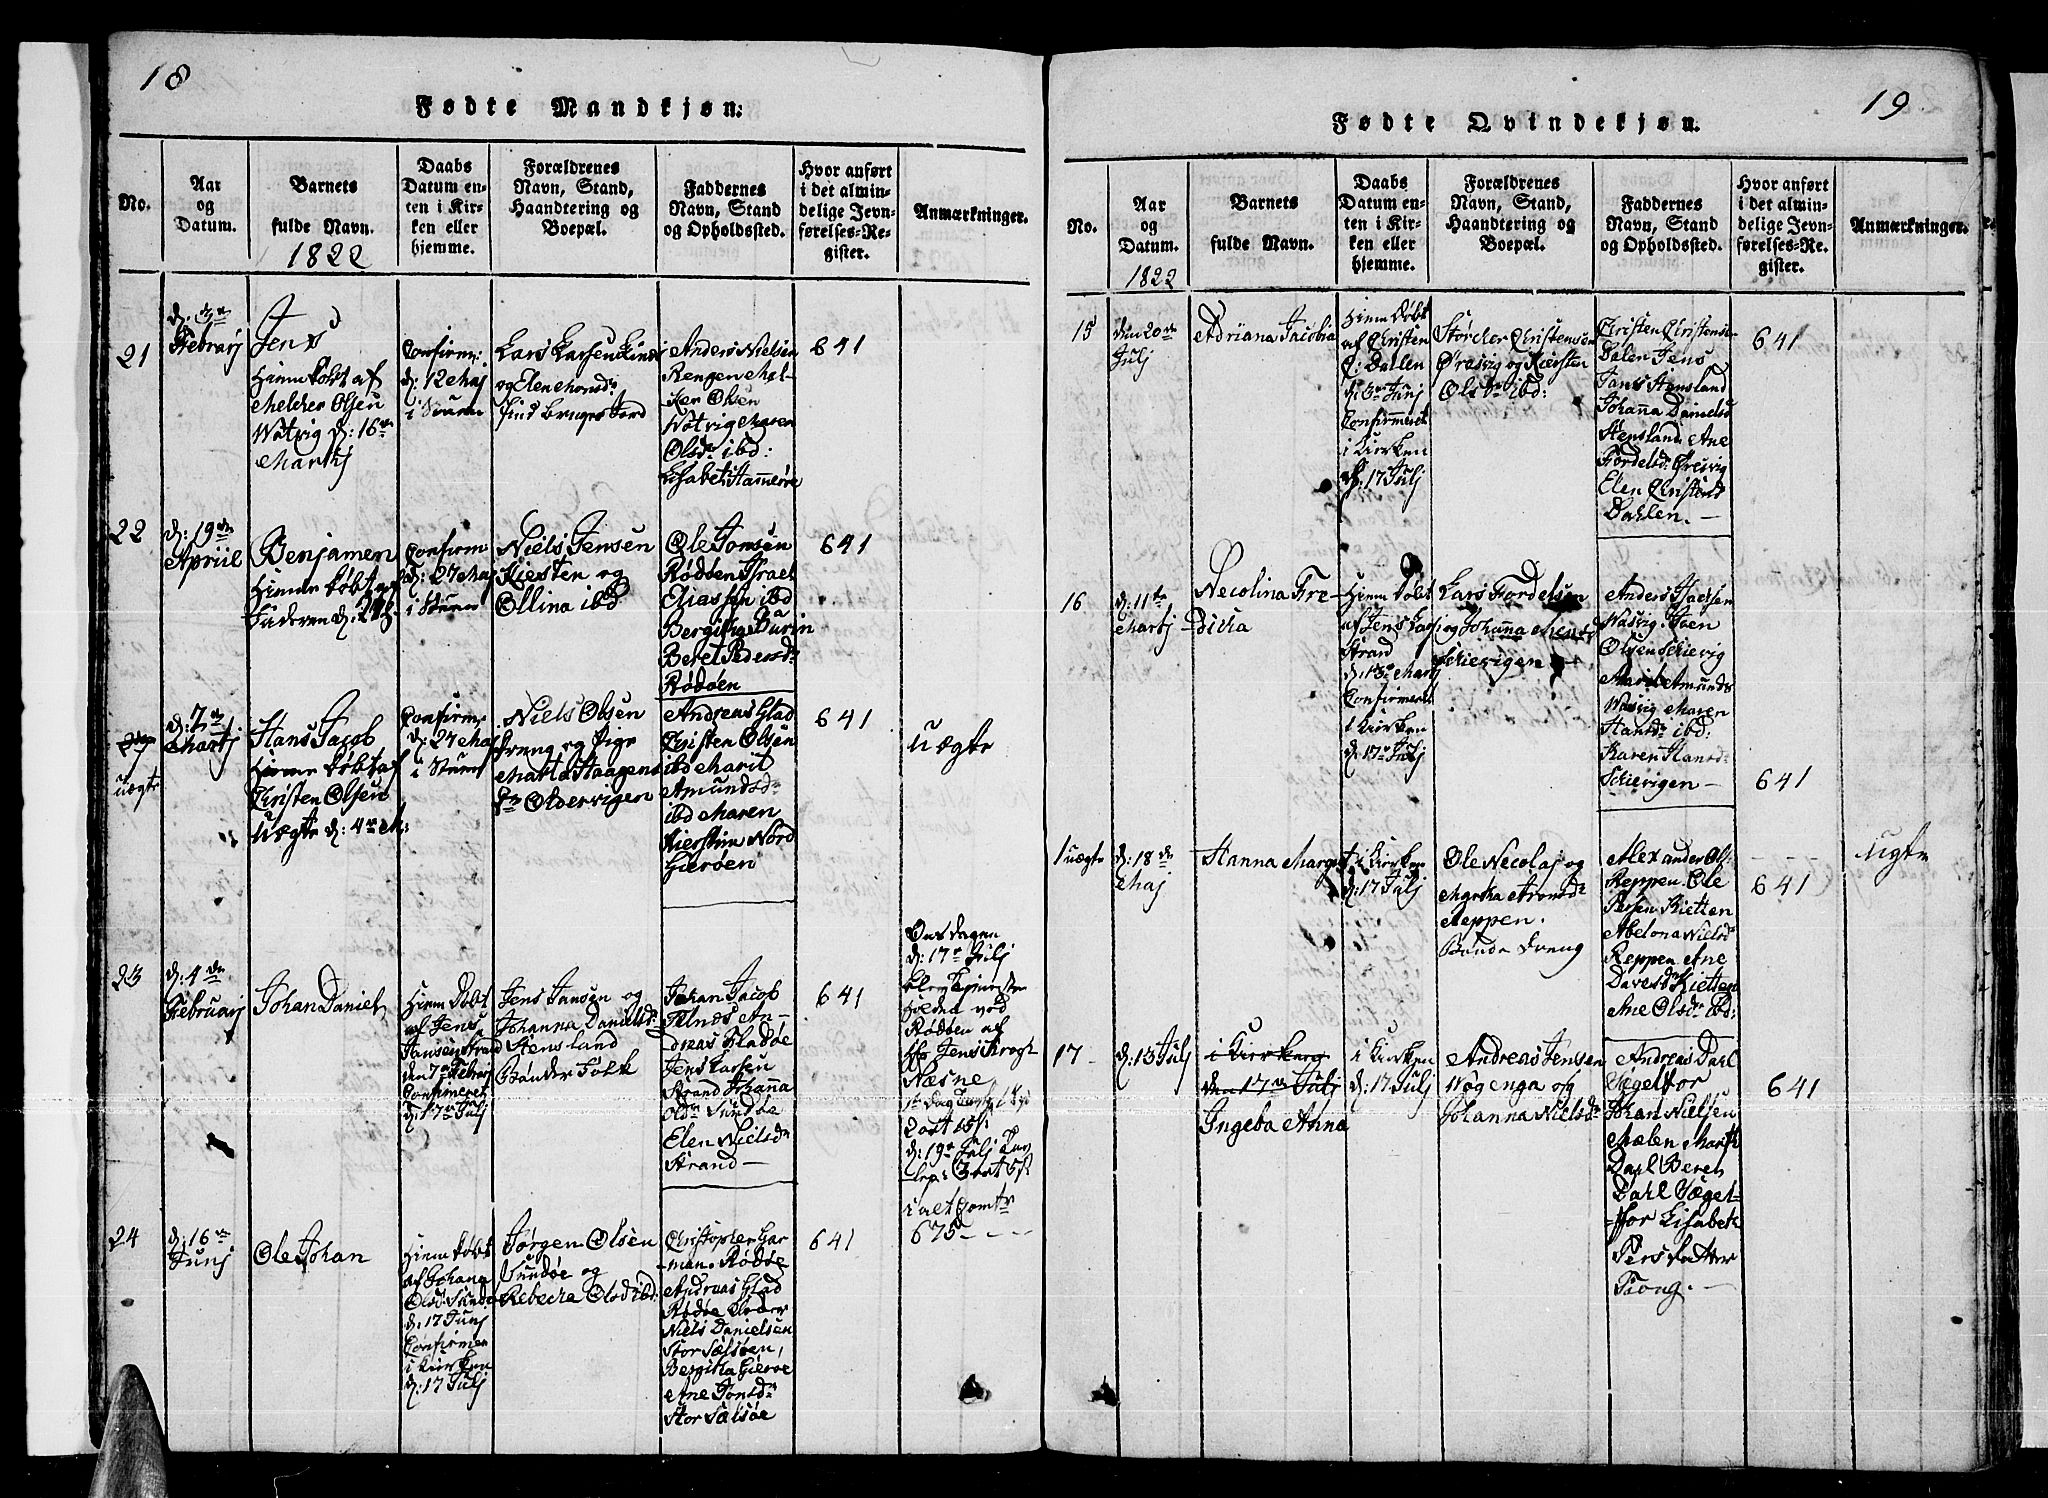 18
Fødte Mandkjøn.
No.
Aar
og
Datum.
Barnets
fulde Navn.
1822
Daabs
Datum en-
ten i Kir-
ken eller
hjemme.
Forældrenes
Navn, Stand,
Haandtering og
Boepæl.
Faddernes
Navn, Stand
og Opholdssted.
Hvor anført
i det almin-
delige Jevn-
førelses-Re-
gister.
Anmærkninger.
21
Febrarj
Jens
Hiemedøbt af
Melcher Olsen
Wotvig d: 16de
Martij
Confirm:
d: 12 Maj
i Stuen
Lars Larsen
og Elen
Anders Nielsen
Rengen Mel-
ker Olsen
Wotvig Maren
Olsdr ibd:
Lisabet Hammerøe
641
22
d: 19de
Apriil
Benjamen
Hieme døbt af
Faderen
Confirm
d: 27 Maj
i Stuen
Niels Jensen
Kiesten og
Ollina ibd
Ole Jonsen
Rødøen Israel
Eliassen ibd
Bergitha
Beret Pedersdr
Rødøen
641
uægte
d: 2
Martj
Hans Jacob
Hieme døbt af
Christen Olsen
Uægte d: 4
Confirm
d: 27 Maj
i Stuen
Niels Olsen
Dreng og Pige
Marta Haagens
Oldervigen
Andreas Glad
Christen Olsen
ibd Marit
Amundsdr
ibd Maren
Kierstine Nord
Gierøen
641
uægte
23
d: 4de
Februarj
Johan Daniel
Hiem Døbt
af Jens
Jansen Strand
den 7
Confirmeret
d: 17 Julj
Jens Jansen og
Johanna Danielsdr
Stensland
Bønder Folk
Johan Jacob
Telnæs An-
dreas Gladøe
Jens Larsen
Strand Johanna
Olsdr Sundøe
Elen Nielsdr
Strand —
641
Onsdagen
d: 17de Julj
Holdne ved
Rødøen af
Jens Krogh
Næsne
d: 19de Julj
675 - - -
24
d: 16de
Junj
Ole Johan
Hiem døbt
af Johana
Olsdr Sundøe
d: 17 Junj
Confirmer
i Kirken
d: 17 Julj
Jørgen Olsen
Sundøe og
Rebecka Olsd ibd:
Christopher Gar
man. Rødøe
Andreas Glad
Rødøe
Niels Danielsen
Stor Sælsøen,
Bergitha Gierøe
Ane Jonsdr
Stor Sælsøe
641
19
Fødte Qvindekjøn.
No.
Aar
og
Datum.
1822
Barnets
fulde Navn.
Daabs
Datum en-
ten i Kir-
ken eller
hjemme.
Forældrenes
Navn, Stand,
Haandtering og
Boepæl.
Faddernes
Navn, Stand
og Opholdssted.
Hvor anført
i det almin-
delige Jevn-
førelses-Re-
gister.
Anmærkninger.
15
Den 20de
Julj
Adriana Jacobia
Hieme Døbt
af Christen
C: Dahlen
Confirmeret
i Kirken
d: 17 Julj
Storcker Christensen
Øresvig og Kiersten
Olsdr ibd:
Christen Christensen
Dalen Jens
Jans Stensland
Johanna Danielsd
Stensland Ane
Tordelsd: Øresvig
Elen Christens
Dahlen. —
641
16
d: 11te
Martj
Necolina Fre-
dicka
Hiem Døbt
af Jens Lars:
Strand
d: 13de Martj
Confirmeret
i Kirken
d: 17de Julj
Lars Tordelsen
og Johanna
Schievigen
Anders Isacsen
Wasvig. Iven
Olsen Schievig
Marit Amunds
Wasvig Maren
Hansdr ibd:
Karen Hansd-
Schievigen —
641
1 uægte
d: 18de
Maj
Hanna Margret
i Kirken
d: 17 Julj
Ole Necolaj og
Martha Aronsdr
Reppen.
Bonde Dreng
Alexander Ols:
Reppen. Ole
Persen Kietten
Abelona Nielsdr
Reppen Ane
Davesdr Kietten
Ane Olsdr ibd:
641
Ugte
17
d: 13 Julj
i Kirken
den 17de Julj
Ingeba Anna
i Kirken
d: 17 Julj
Andreas Jensen
Wogenga og
Johanna Nielsdr
Andreas Dahl
Segelfor
Johan Nielsen
Mælen Marth
Dahl Beret
Dahl Sægel-
for Lisabet
Persdatter
Tiong. —
641